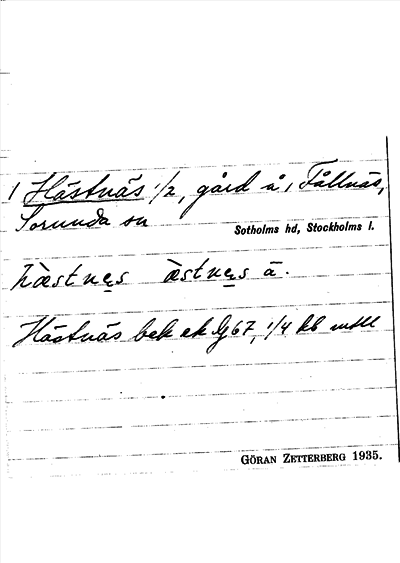 1 Hästnäs 1/2, gård å, Fållnäs,
Sorunda sn Sotholms hd, Stockholms l.
hæstnes æstnes ä.
Hästnäs bek ek bl 67, 1/4 kb mtll
GÖRAN ZETTERBERG 1935.